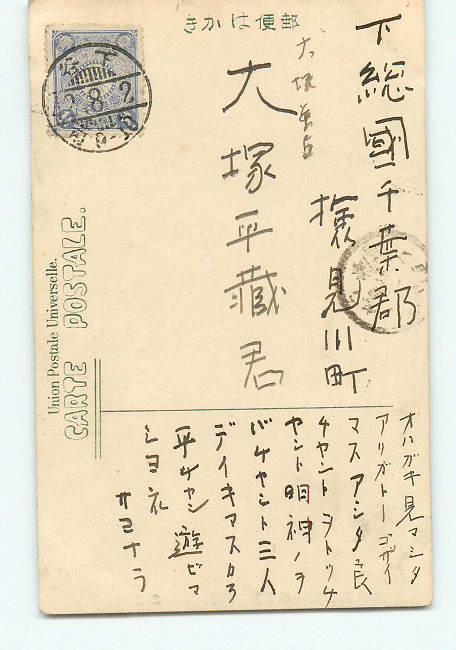 郵便はかき
下總國千葉郡
見川町
大塚平藏君
大塚
オハガキ見マシタ
アリガトーゴザイ
マスアシタ良
チヤントヲトツチ
ヤント明神ノヲ
バチヤント三人
デイキマスカラ
平チヤン遊ビマ
シヨネ
サヨナラ
Union Postale Universelle.
CARTE POSTALE.